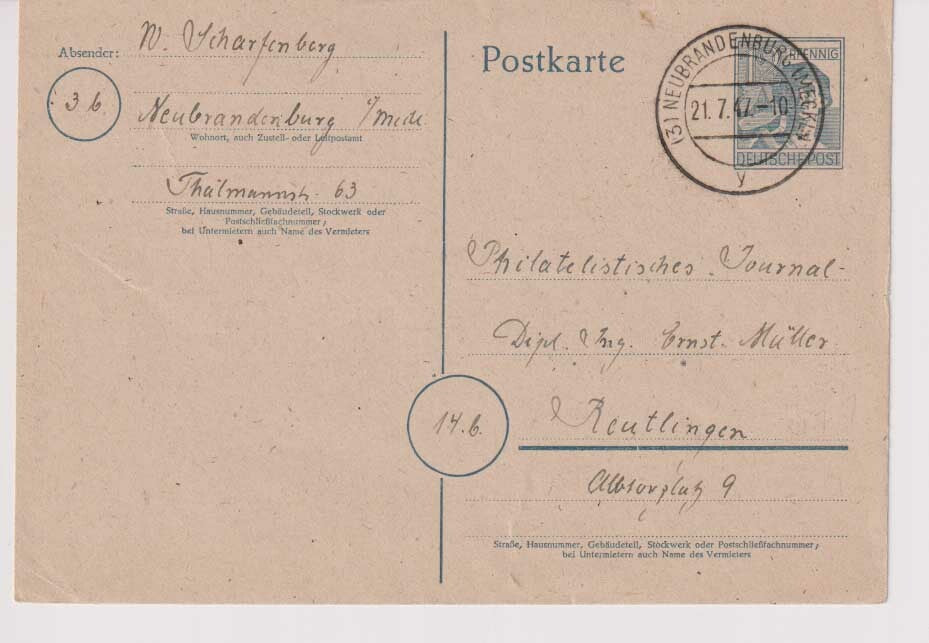 Absender:
W. Scharfenberg
3 b.
Neubrandenburg i/Meckl.
Wohnort, auch Zustell- oder Leitpostamt
Thälmannstr. 63
Straße, Hausnummer, Gebäudeteil, Stockwerk oder
Postschließfachnummer;
bei Untermietern auch Name des Vermieters
Postkarte
(3) NEUBRANDENBURG (MECKL)
21. 7. 47.-10
y
PFENNIG
DEUTSCHE POST
Philatelistisches Journal-
Dipl. Ing. Ernst Müller
14.b.
Reutlingen
Albtorplatz 9
Straße, Hausnummer, Gebäudeteil, Stockwerk oder Postschließfachnummer;
bei Untermietern auch Name des Vermieters